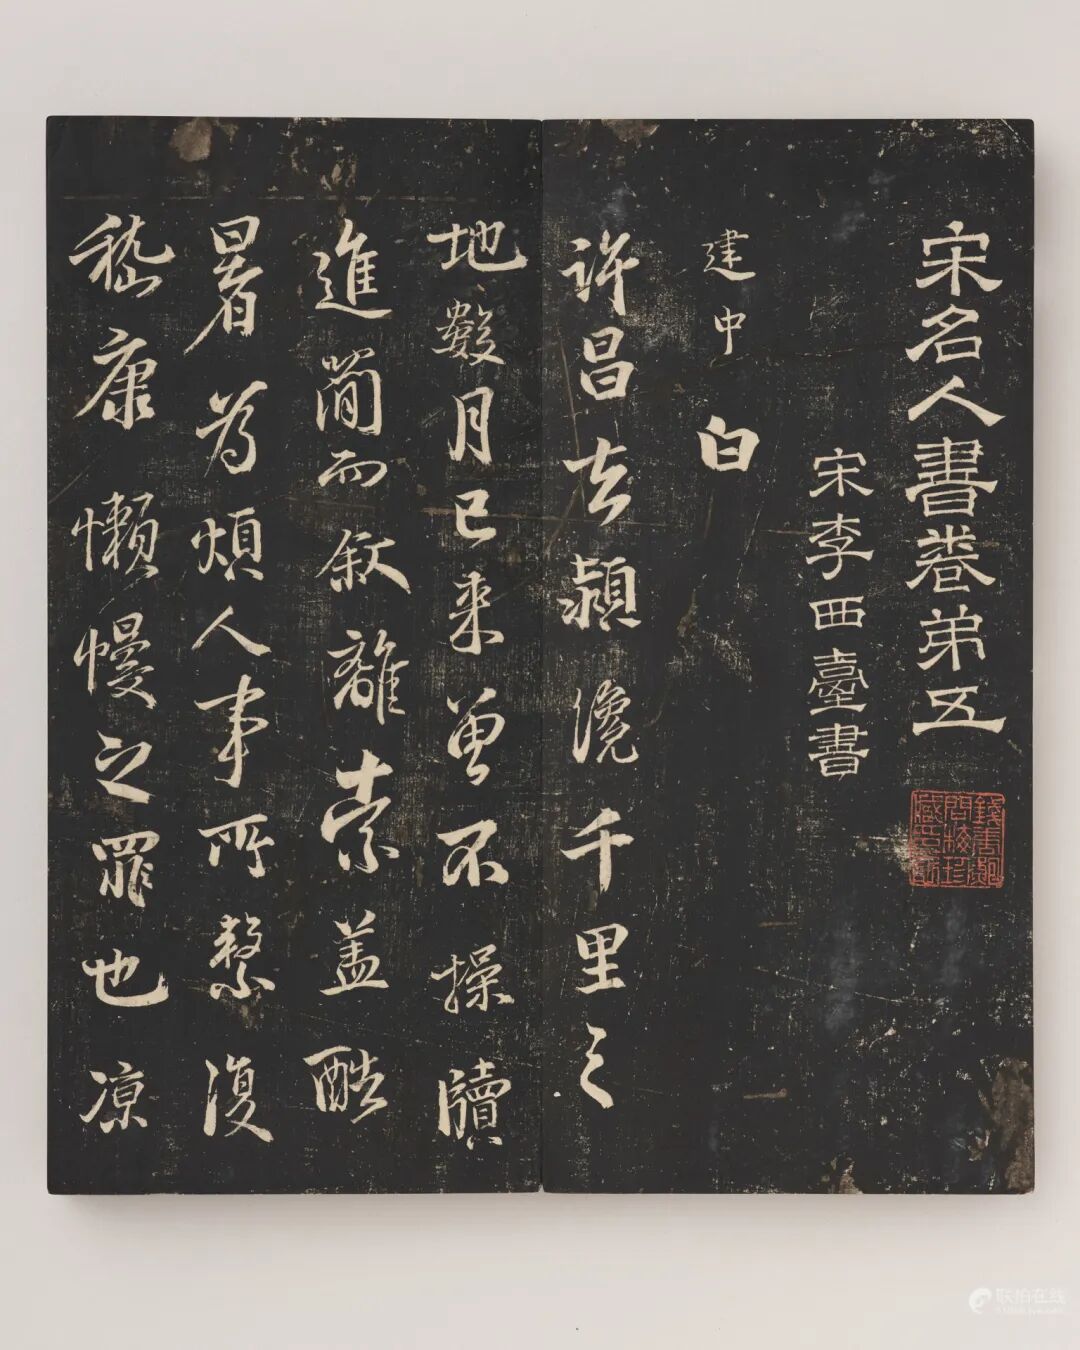 宋名人書卷弟五
宋李西臺書
建中白
許昌去潁纔千里之
地數月已來曾不操牘
進簡而敘離索蓋酷
暑爲煩人事所繫復
嵇康懶慢之罪也凉
联拍在线